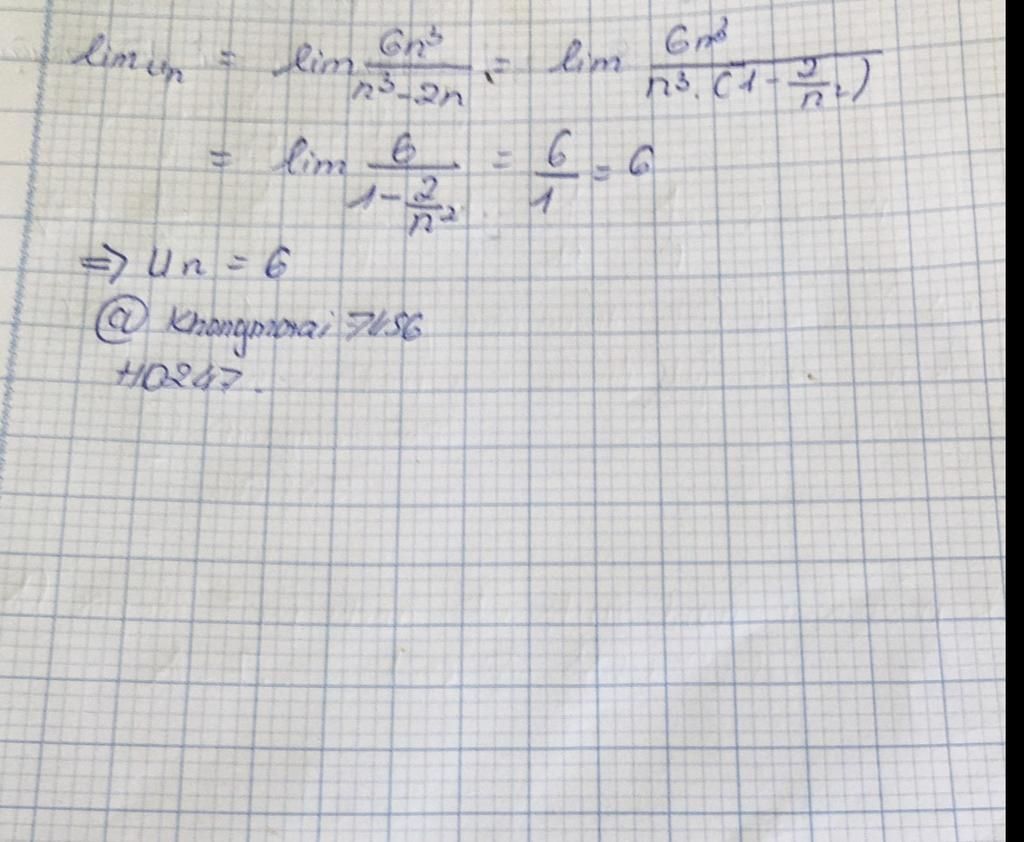 lim un = lim 6n³/(n³-2n) = lim 6n³/(n³.(1-2/n²))
= lim 6/(1-2/n²) = 6/1 = 6
=> Un = 6
@ Khongmorai 7456